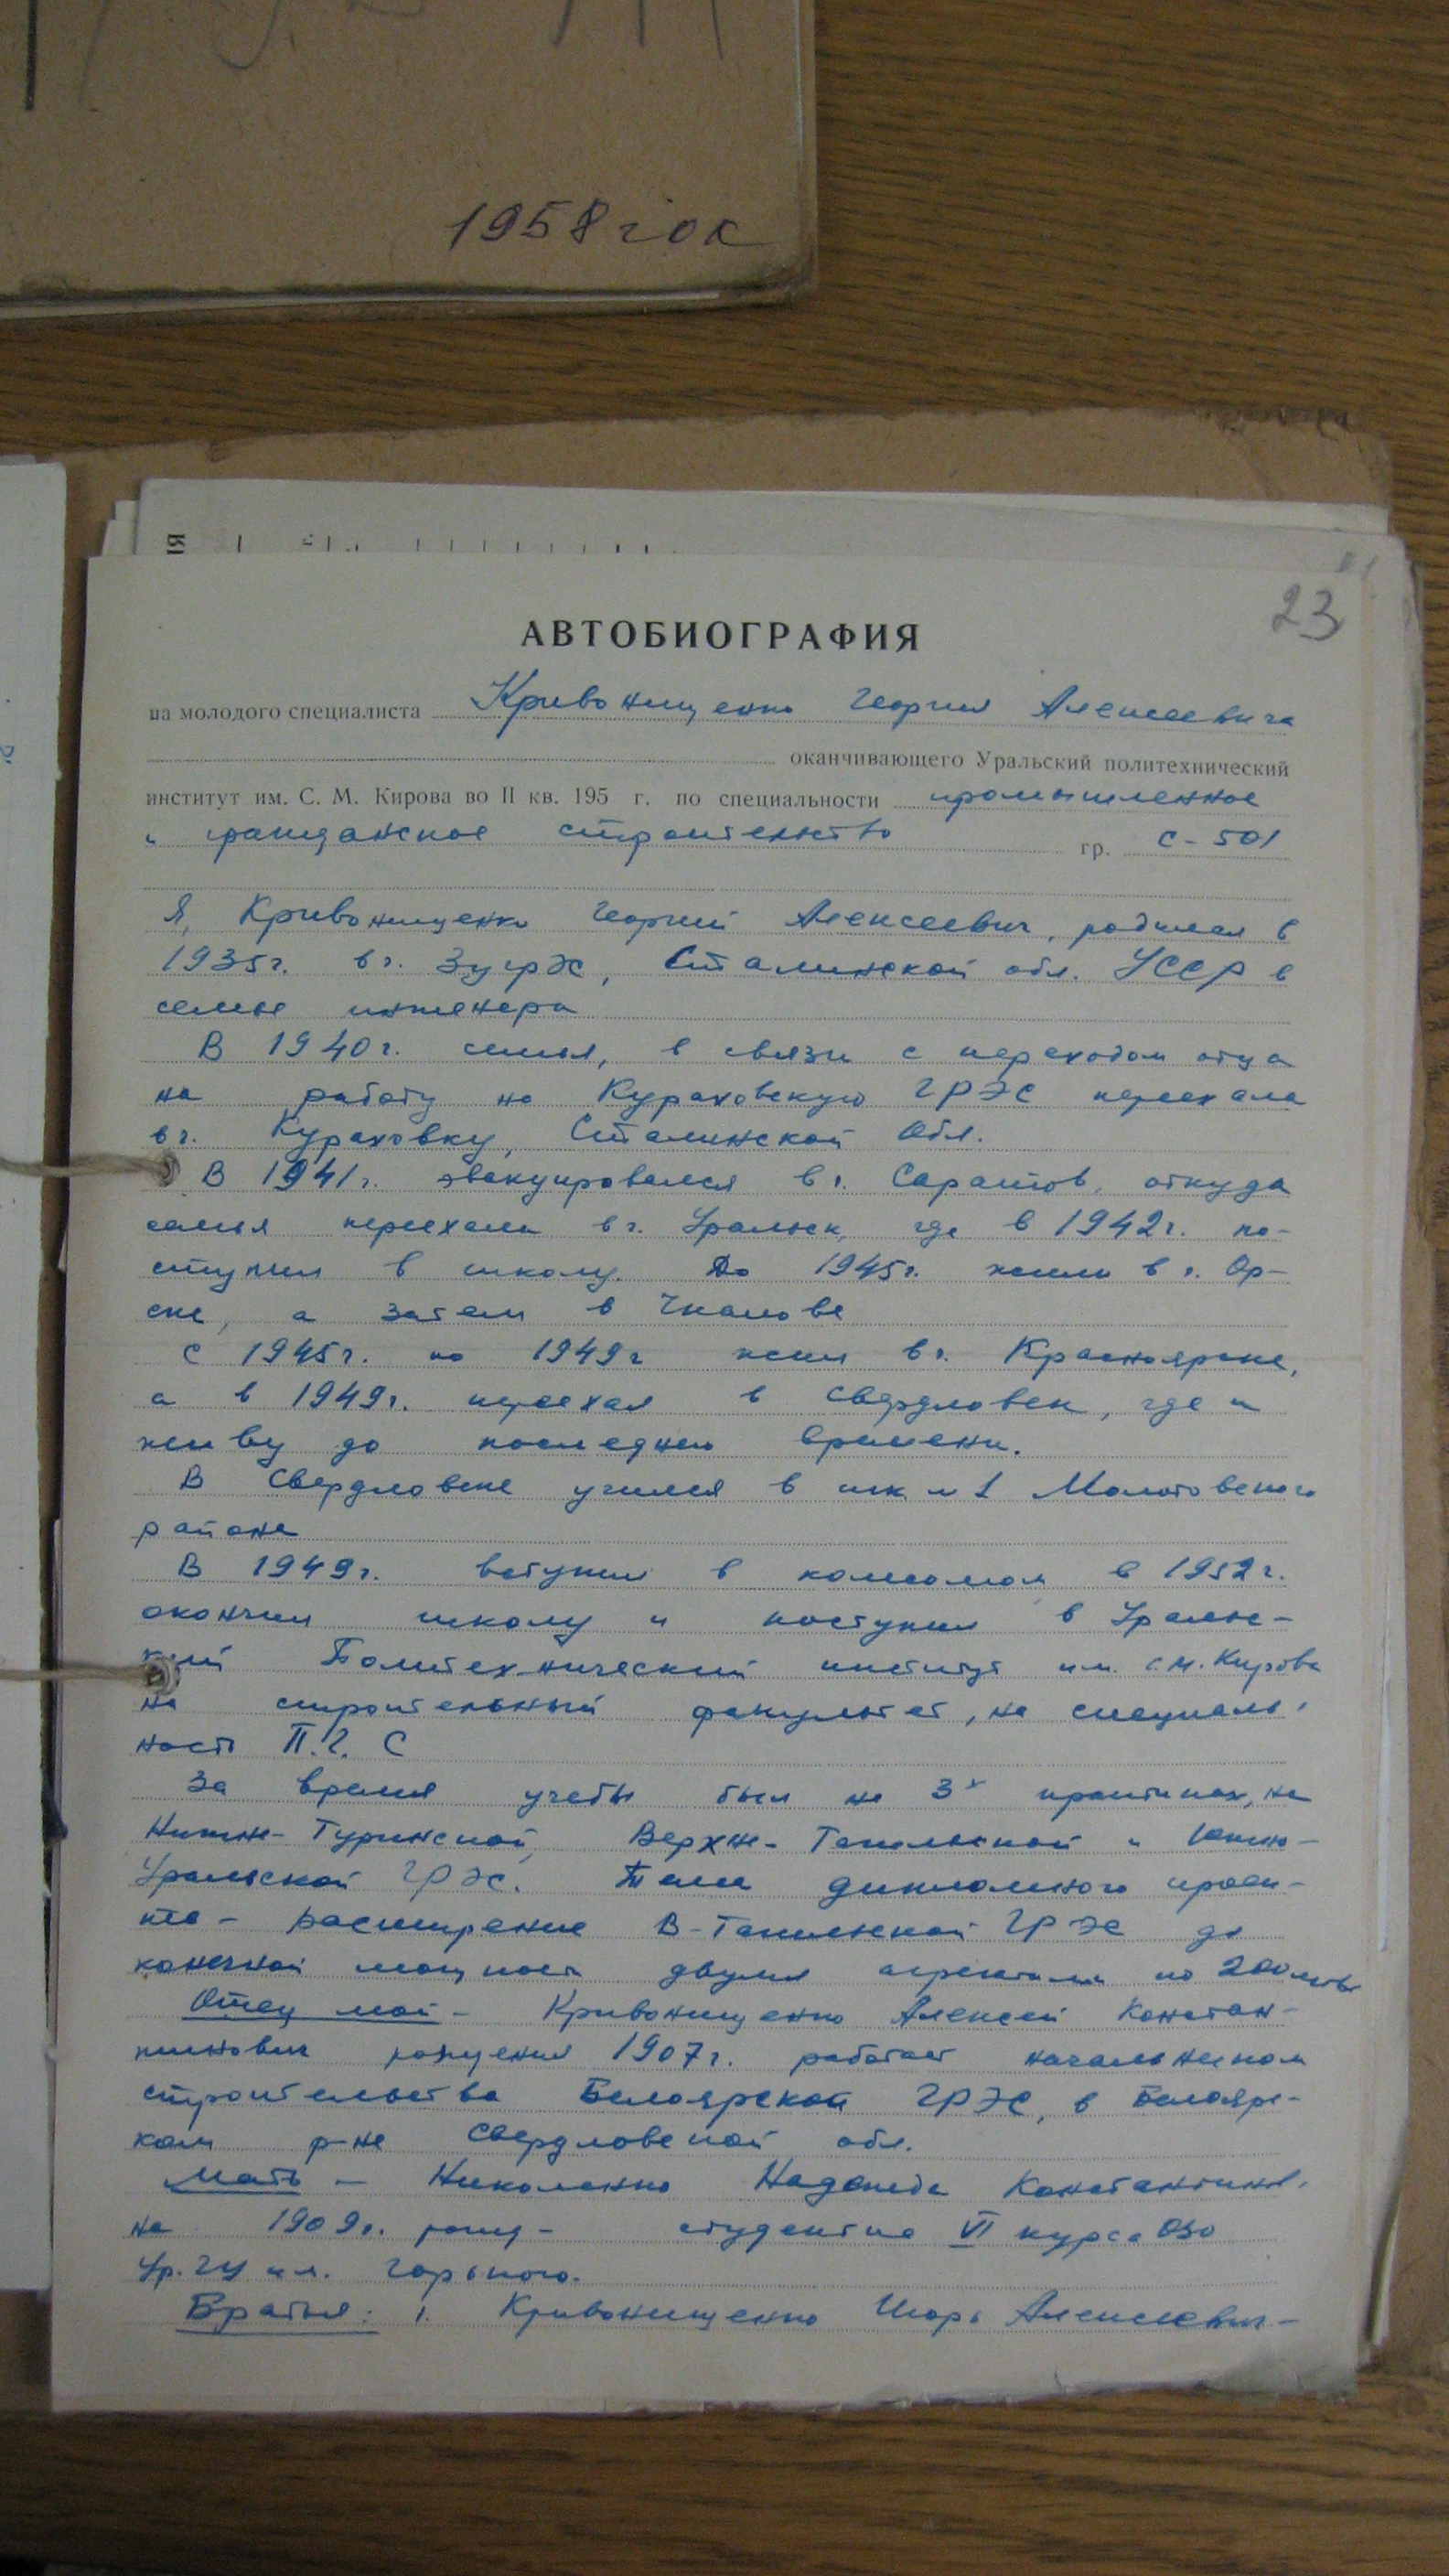 1958 год
23
АВТОБИОГРАФИЯ
на молодого специалиста Кривонищенко Георгия Алексеевича
оканчивающего Уральский политехнический
институт им. С. М. Кирова во II кв. 195 г. по специальности промышленное
и гражданское строительство гр. С-501
Я, Кривонищенко Георгий Алексеевич, родился в
1935г. в г. ЗуГРЭС, Сталинской обл. УССР в
семье инженера
В 1940г. семья, в связи с переходом отца
на работу на Кураховскую ГРЭС переехала
в г. Кураховку, Сталинской Обл.
В 1941г. эвакуировался в г. Саратов, откуда
семья переехала в г. Уральск, где в 1942г. по-
ступил в школу. До 1945г. жили в г. Ор-
ске, а затем в Чкалове
С 1945г. по 1949г жил в г. Красноярске,
а в 1949г. переехал в Свердловск, где и
живу до последнего времени.
В Свердловске учился в шк №1 Молотовского
района
В 1949г. вступил в комсомол в 1952г.
окончил школу и поступил в Уральс-
кий Политехнический институт им. С.М. Кирова
на строительный факультет, на специаль-
ность П.Г.С
За время учебы был на 3х практиках, на
Нижне-Туринской, Верхне-Тагильской и Южно-
Уральской ГРЭС. Тема дипломного проек-
та - расширение В-Тагильской ГРЭС до
конечной мощности двумя агрегатами по 200
Отец мой - Кривонищенко Алексей Констан-
тинович рождения 1907г. работает начальником
строительства Белоярской ГРЭС, в Белоярс-
ком р-не Свердловской обл.
Мать - Николаенко Надежда Константинов-
на 1909г. рожд - студентка VI курса ОЗО
Ур.ГУ им. Горького.
Братья: 1. Кривонищенко Игорь Алексеевич -